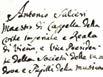 Antonio Salieri
Maestro di Cappella della
Corte Imperiale e Reale
di Vienna, e Vice Presidente
della Società delle
Vedove e Pupilli della musica